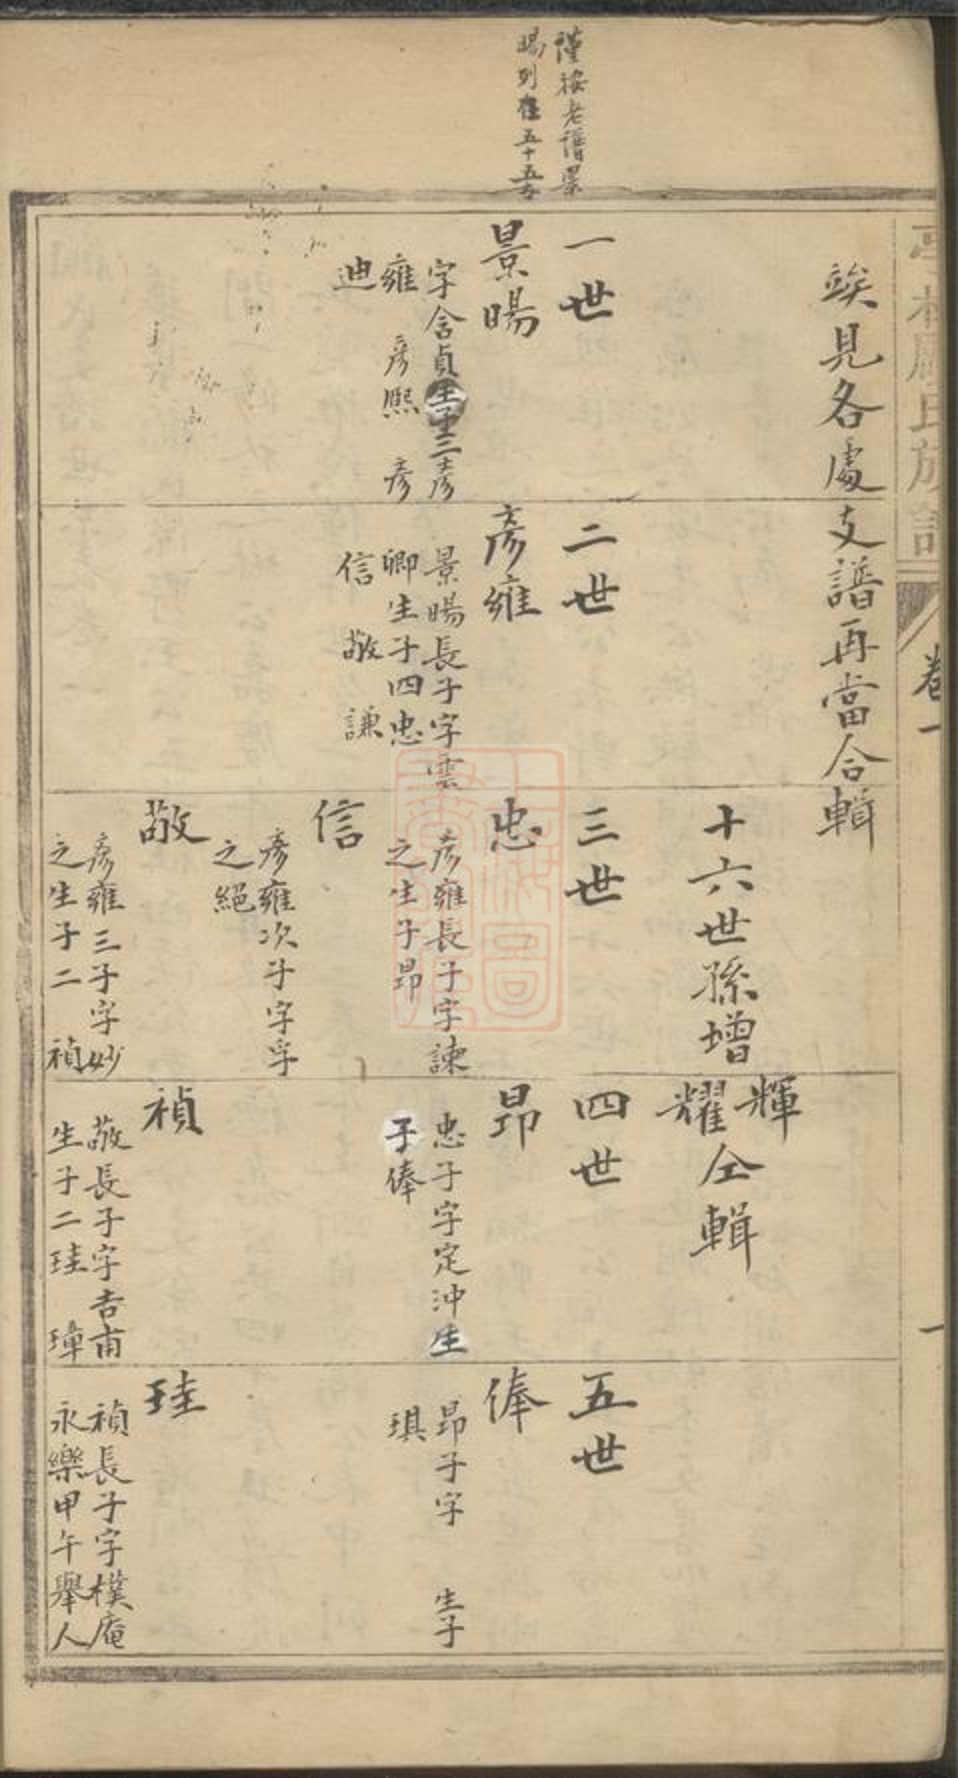 謹按老譜景
暘列在五十五世
竢見各處支譜再當合輯
十六世孫增
輝
耀
仝輯
一世
景暘
字含貞生子三彥
雍 彥熙 彥
迪
二世
彥雍
景暘長子字雲
卿生子四忠
信 敬 謙
三世
忠
彥雍長子字諫
之生子昂
信
彥雍次子字孚
之絕
敬
彥雍三子字妙
之生子二 禎
四世
昂
忠子字定沖生
子俸
禎
敬長子字吉甫
生子二珪 璋
五世
俸
昂子字 生子
琪
珪
禎長子字樸庵
永樂甲午舉人
氏族譜
卷一
一